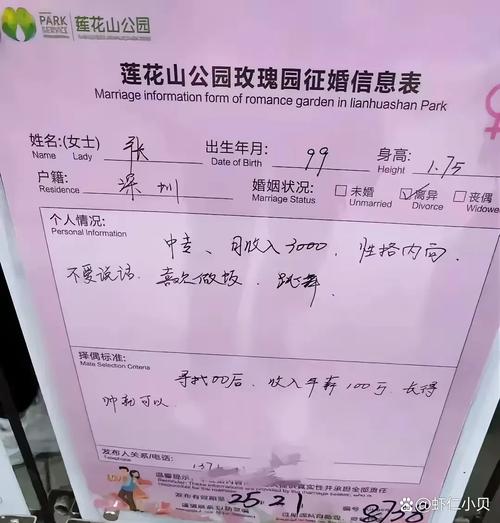 PARK SERVICE 莲花山公园
莲花山公园玫瑰园征婚信息表
Marriage information form of romance garden in lianhuashan Park
姓名:(女士) 张 出生年月: 99 身高: 1.75
Name Lady Date of Birth Height
户籍: 深圳 婚姻状况: 未婚 离异 丧偶
Residence Marriage Status Unmarried Divorce Widowed
个人情况:
Personal Information
中专、月收入3000,性格内向
不爱说话 喜欢做饭、跳舞
择偶标准:
Mate Selection Criteria
寻找00后、收入年薪100万、长得
帅就可以
发布人关系/电话: 137
Telephone
温馨提示: 真实性并承担全部责任
25.21
@虾仁小贝